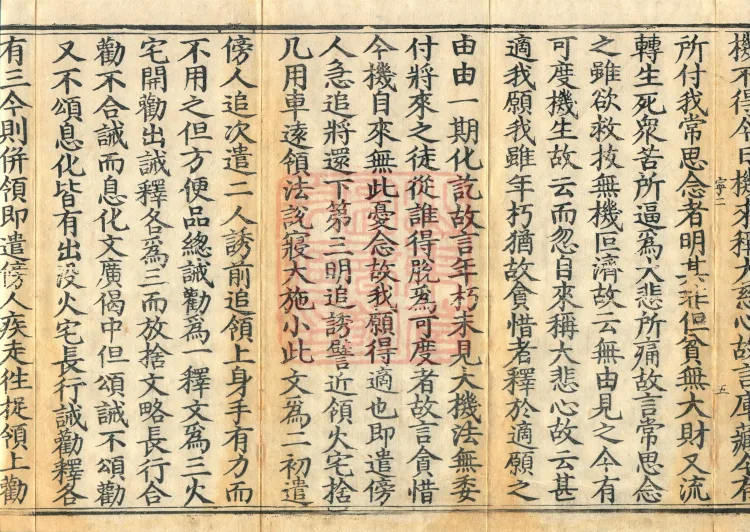 機不得今日機不稱大慈心故言庫藏今有
五
所付我常思念者明其非但貧無大財又流
轉生死衆苦所逼爲大悲所痛故言常思念
之雖欲救拔無機叵濟故云無由見之今有
可度機生故云而忽自來稱大悲心故云甚
適我願我雖年朽猶故貪惜者釋於適願之
由由一期化訖故言年朽未見大機法無委
付將來之徒從誰得脫爲可度者故言貪惜
今機自來無此憂念故我願得適也即遣傍
人急追將還下第三明追誘譬近領火宅捨
几用車遠領法說寢大施小此文爲二初遣
傍人追次遣二人誘前追領上身手有力而
不用之但方便品總誡勸爲一釋文爲三火
宅開勸出誡釋各爲三而放捨文略長行合
勸不合誡而息化文廣偈中但頌誡不頌勸
又不頌息化皆有出沒火宅長行誡勸釋各
有三今則併領即遣傍人疾走往捉領上勸